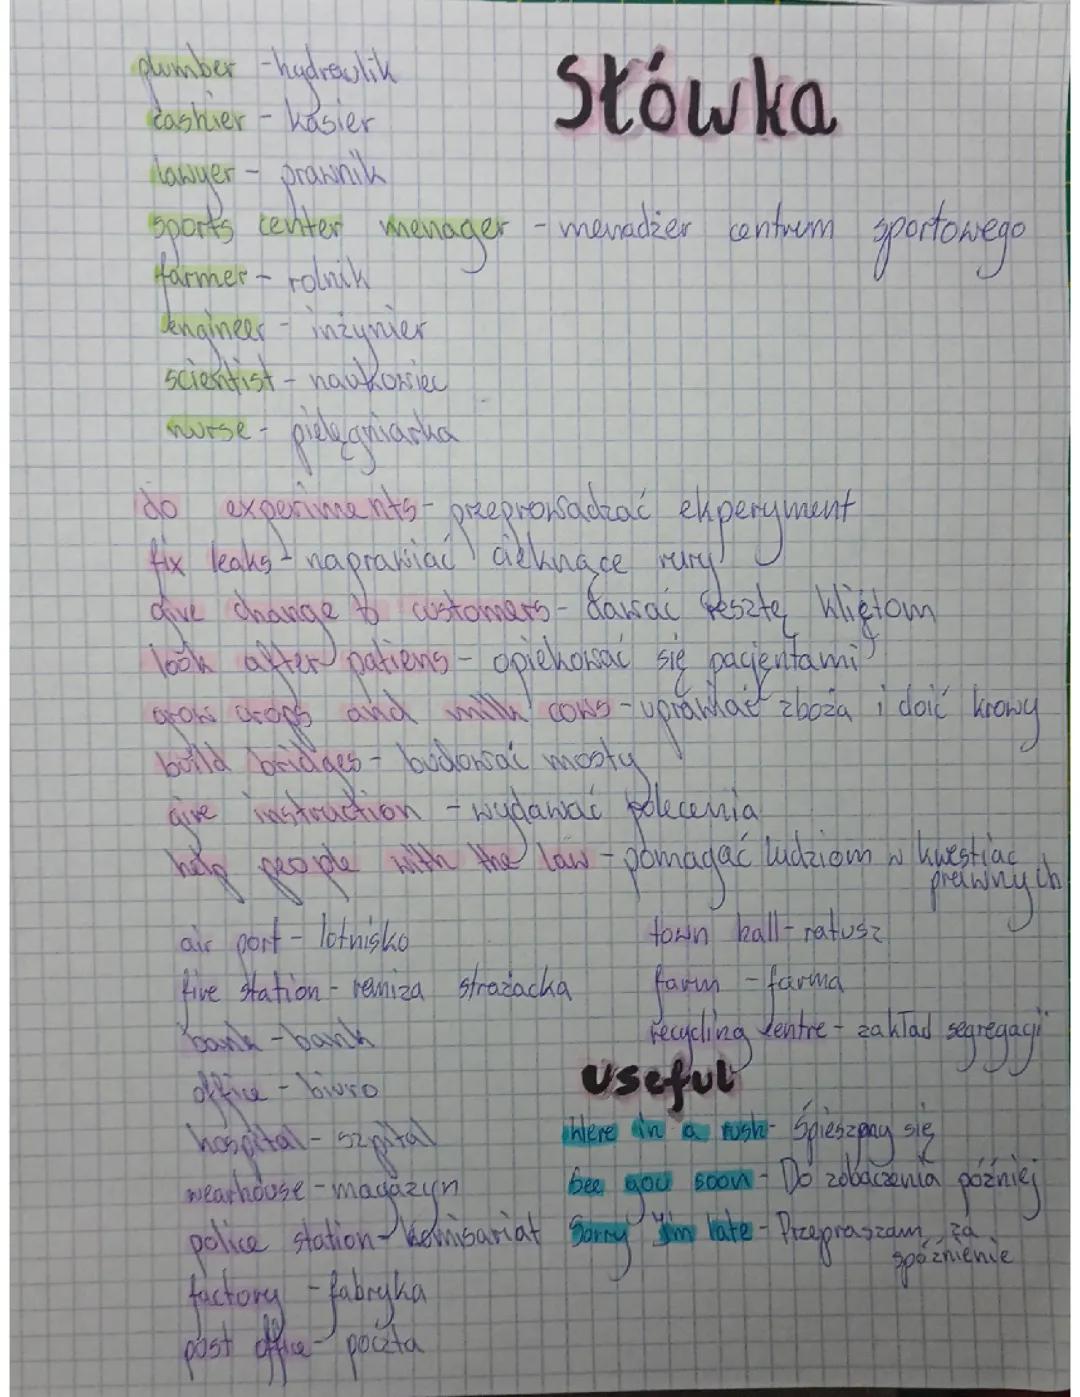 Słówka
plumber - hydraulik
cashier - kasier
lawyer - prawnik
sports center menager - menadżer centrum sportowego
farmer - rolnik
engineer - inżynier
scientist - naukowiec
nurse - pielęgniarka
do experiments - przeprowadzać ekperyment
fix leaks - naprawiać cieknące rury
give change to customers - dawać resztę kliętom
look after patiens - opiekować się pacjentami
grow crops and milk cows - uprawiać zboża i doić krowy
build bridges - budować mosty
give instruction - wydawać polecenia
help people with the law - pomagać ludziom w kwestiac
prawnych
air port - lotnisko
fire station - remiza strażacka
bank - bank
office - biuro
hospital - szpital
wearhouse - magazyn
police station - komisariat
factory - fabryka
post office - poczta
town hall - ratusz
farm - farma
recycling centre - zakład segregacji
Useful
Were in a rush - Śpieszymy się
See you soon - Do zobaczenia później
Sorry I'm late - Przepraszam za
spóźnienie